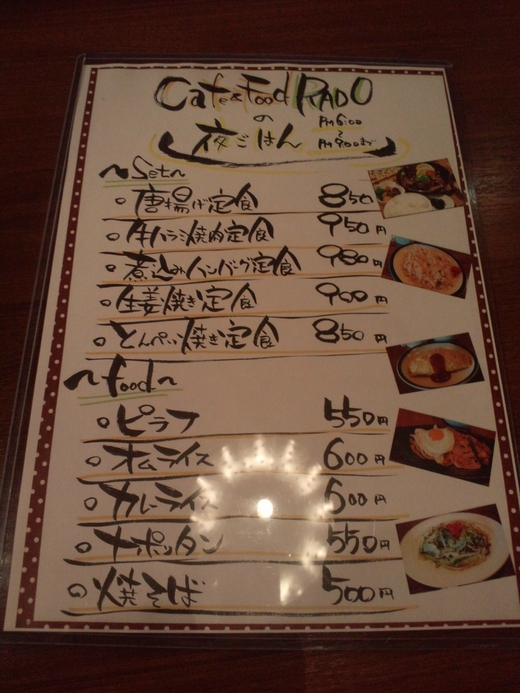 Cafe&Food RADO
の
夜ごはん PM6:00〜PM9:00まで
〜Set〜
○唐揚げ定食 850
○牛ハラミ焼肉定食 950円
○煮込みハンバーグ定食 980円
○生姜焼き定食 900円
○とんぺい焼き定食 850円
〜food〜
○ピラフ 550円
○オムライス 600円
○カレーライス 600円
○ナポリタン 550円
○焼そば 500円